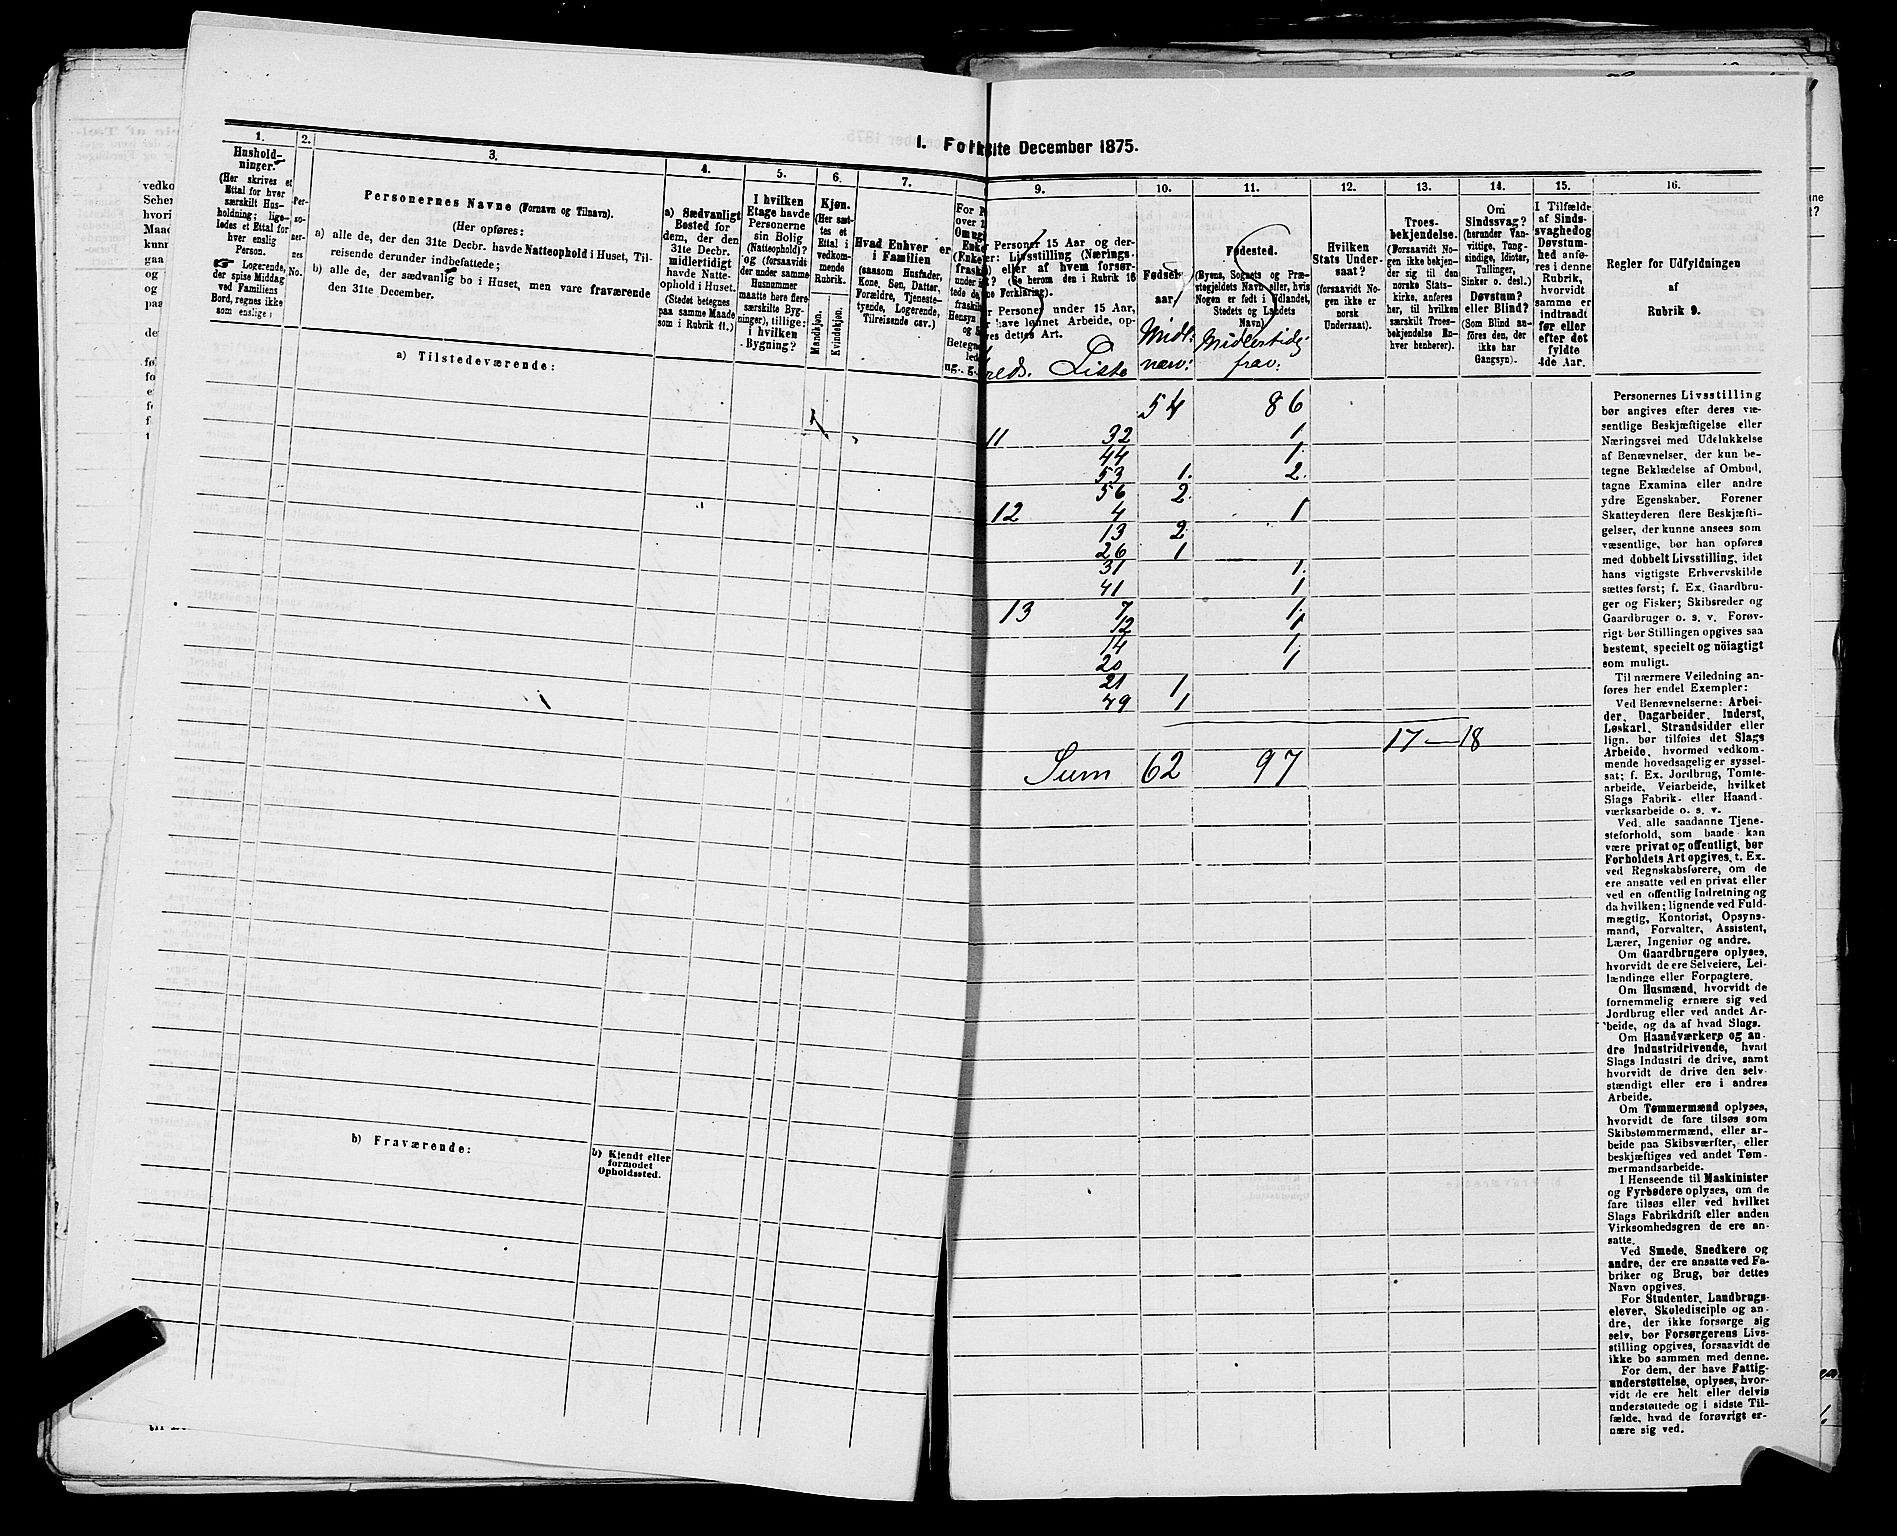 I. Folk
ste December 1875.
1.
Hushold-
ninger.
(Her skrives et
Ettal for hver
særskilt Hus-
holdning; lige-
ledes et Ettal for
hver enslig
Person.
Logerende,
der spise Middag
ved Familiens
Bord, regnes ikke
som enslige)
2.
Per-
so-
ner-
nes
No.
3.
Personernes Navne (Fornavn og Tilnavn).
(Her opføres:
a) alle de, der den 31te Decbr. havde Natteophold i Huset, Til-
reisende derunder indbefattede;
b) alle de, der sædvanlig bo i Huset, men vare fraværende
den 31te December.
a) Tilstedeværende:
4.
a) Sædvanligt
Bosted for
dem, der den
31te Decbr.
midlertidigt
havde Natte-
ophold i Huset.
(Stedet betegnes
paa samme Maade
som i Rubrik 11.)
5.
I hvilken
Etage havde
Personerne
sin Bolig
(Natteophold)?
og (forsaavidt
der under samme
Husnummer
maatte høre flere
særskilte Byg-
ninger), tillige:
i hvilken
Bygning?
6.
Kjøn.
(Her sæt-
tes et
Ettal i
vedkom-
mende
Rubrik.
Mandkjøn.
Kvindekjøn.
7.
Hvad Enhver er
i Familien
(saasom Husfader,
Kone, Søn, Datter,
Forældre, Tjeneste-
tyende, Logerende,
Tilreisende osv.)
For P
over 1
Om ug
Enke
(Enke
frask
under i
tede de,
fraskil
Hensyn
og S
Betegne
lede
ug., g.
9.
Personer 15 Aar og der-
er: Livsstilling (Nærings-
) eller af hvem forsør-
(Se herom den i Rubrik 16
ne Forklaring).
r Personer under 15 Aar,
have lønnet Arbeide, op-
res dettes Art.
reds. Liste
10.
Fødsels-
aar
Midl:
nærv:
11.
Fødested.
(Byens, Sognets og Præ-
stegjeldets Navn eller, hvis
Nogen er født i Udlandet,
Stedets og Landets
Navn)
Midlertidig
frav:
12.
Hvilken
Stats Under-
saat?
(forsaavidt No-
gen ikke er
norsk
Undersaat).
13.
Troes-
bekjendelse.
(Forsaavidt No-
gen ikke bekjen-
der sig til den
norske Stats-
kirke, anføres
her, til hvilken
særskilt Troes-
bekjendelse En-
hver henhører).
14.
Om
Sindssvag?
(herunder Van-
vittige, Tung-
sindige, Idioter,
Tullinger,
Sinker o. desl.)
Døvstum?
eller Blind?
(Som Blind an-
føres den, der
ikke har
Gangsyn).
15.
I Tilfælde
af Sinds-
svaghed og
Døvstum-
hed anfø-
res i denne
Rubrik,
hvorvidt
samme er
indtraadt
før eller
efter det
fyldte
4de Aar.
16.
Regler for Udfyldningen
af
Rubrik 9.
54 86
11 32 1
44 1
53 1. 2.
56 2.
12 4 1
13 2
26 1
31 1
41 1
13 7 1
12 1
14 1
20 1
21 1
49 1
17—18
Sum 62 97
b) Fraværende:
b) Kjendt eller
formodet
Opholdssted.
Personernes Livsstilling
bør angives efter deres væ-
sentlige Beskjæftigelse eller
Næringsvei med Udelukkelse
af Benævnelser, der kun be-
tegne Beklædelse af Ombud,
tagne Examina eller andre
ydre Egenskaber. Forener
Skatteyderen flere Beskjæfti-
gelser, der kunne ansees som
væsentlige, bør han opføres
med dobbelt Livsstilling, idet
hans vigtigste Erhvervskilde
sættes først; f. Ex. Gaardbru-
ger og Fisker; Skibsreder og
Gaardbruger o. s. v. Forøv-
rigt bør Stillingen opgives saa
bestemt, specielt og nöiagtigt
som muligt.
Til nærmere Veiledning an-
føres her endel Exempler:
Ved Benævnelserne: Arbei-
der, Dagarbeider, Inderst,
Løskarl, Strandsidder eller
lign. bør tilføies det Slags
Arbeide, hvormed vedkom-
mende hovedsagelig er syssel-
sat; f. Ex. Jordbrug, Tomte-
arbeide, Veiarbeide, hvilket
Slags Fabrik- eller Haand-
værksarbeide o. s. v.
Ved alle saadanne Tjene-
steforhold, som baade kan
være privat og offentligt, bør
Forholdets Art opgives, t. Ex.
ved Regnskabsførere, om de
ere ansatte ved en privat eller
ved en offentlig Indretning og
da hvilken; lignende ved Fuld-
mægtig, Kontorist, Opsyns-
mand, Forvalter, Assistent,
Lærer, Ingeniør og andre.
Om Gaardbrugere oplyses,
hvorvidt de ere Selveiere, Lei-
lændinge eller Forpagtere.
Om Husmænd, hvorvidt de
fornemmelig ernære sig ved
Jordbrug eller ved andet Ar-
beide, og da af hvad Slags.
Om Haandværkere og an-
dre Industridrivende, hvad
Slags Industri de drive, samt
hvorvidt de drive den selv-
stændigt eller ere i andres
Arbeide.
Om Tømmermænd oplyses,
hvorvidt de fare tilsøs som
Skibstømmermænd, eller ar-
beide paa Skibsværfter, eller
beskjæftiges ved andet Tøm-
mermandsarbeide.
I Henseende til Maskinister
og Fyrbødere oplyses, om de
fare tilsøs eller ved hvilket
Slags Fabrikdrift eller anden
Virksomhedsgren de ere an-
satte.
Ved Smede, Snedkere og
andre, der ere ansatte ved Fa-
briker og Brug, bør dettes
Navn opgives.
For Studenter, Landbrugs-
elever, Skoledisciple og an-
dre, der ikke forsørge sig
selv, bør Forsørgerens Livs-
stilling opgives, forsaavidt de
ikke bo sammen med denne.
For dem, der have Fattig-
understøttelse, oplyses, hvor-
vidt de ere helt eller delvis
understøttede og i sidste Til-
fælde, hvad de forøvrigt er-
nære sig ved.